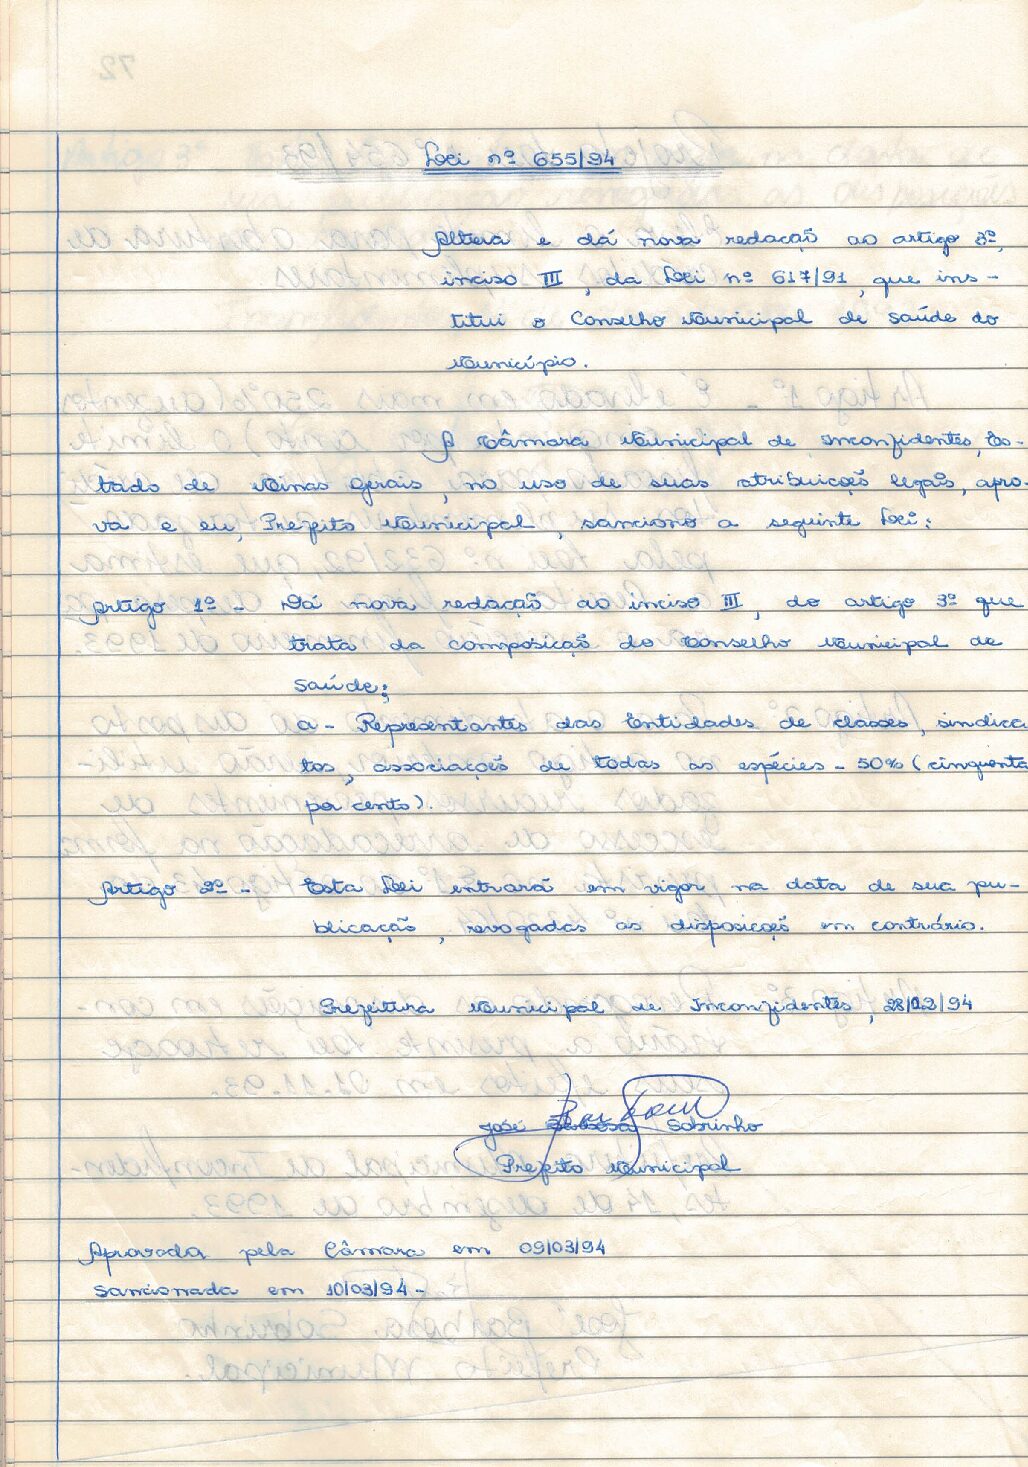 Lei nº 655/94
Altera e dá nova redação ao artigo 3º,
inciso III, da Lei nº 617/91, que ins-
titui o Conselho Municipal de Saúde do
Município.
A Câmara Municipal de Inconfidentes, Es-
tado de Minas Gerais, no uso de suas atribuições legais, apro-
va e eu, Prefeito Municipal, sanciono a seguinte Lei:
Artigo 1º - Dá nova redação ao inciso III, do artigo 3º que
trata da composição do Conselho Municipal de
Saúde;
a - Representantes das Entidades de classes, sindica
tos, associações de todas as espécies - 50% (cinquenta
por cento).
Artigo 2º - Esta Lei entrará em vigor na data de sua pu-
blicação, revogadas as disposições em contrário.
Prefeitura Municipal de Inconfidentes, 28/02/94
José Barbosa Sobrinho
Prefeito Municipal
Aprovada pela Câmara em 09/03/94
Sancionada em 10/03/94 -